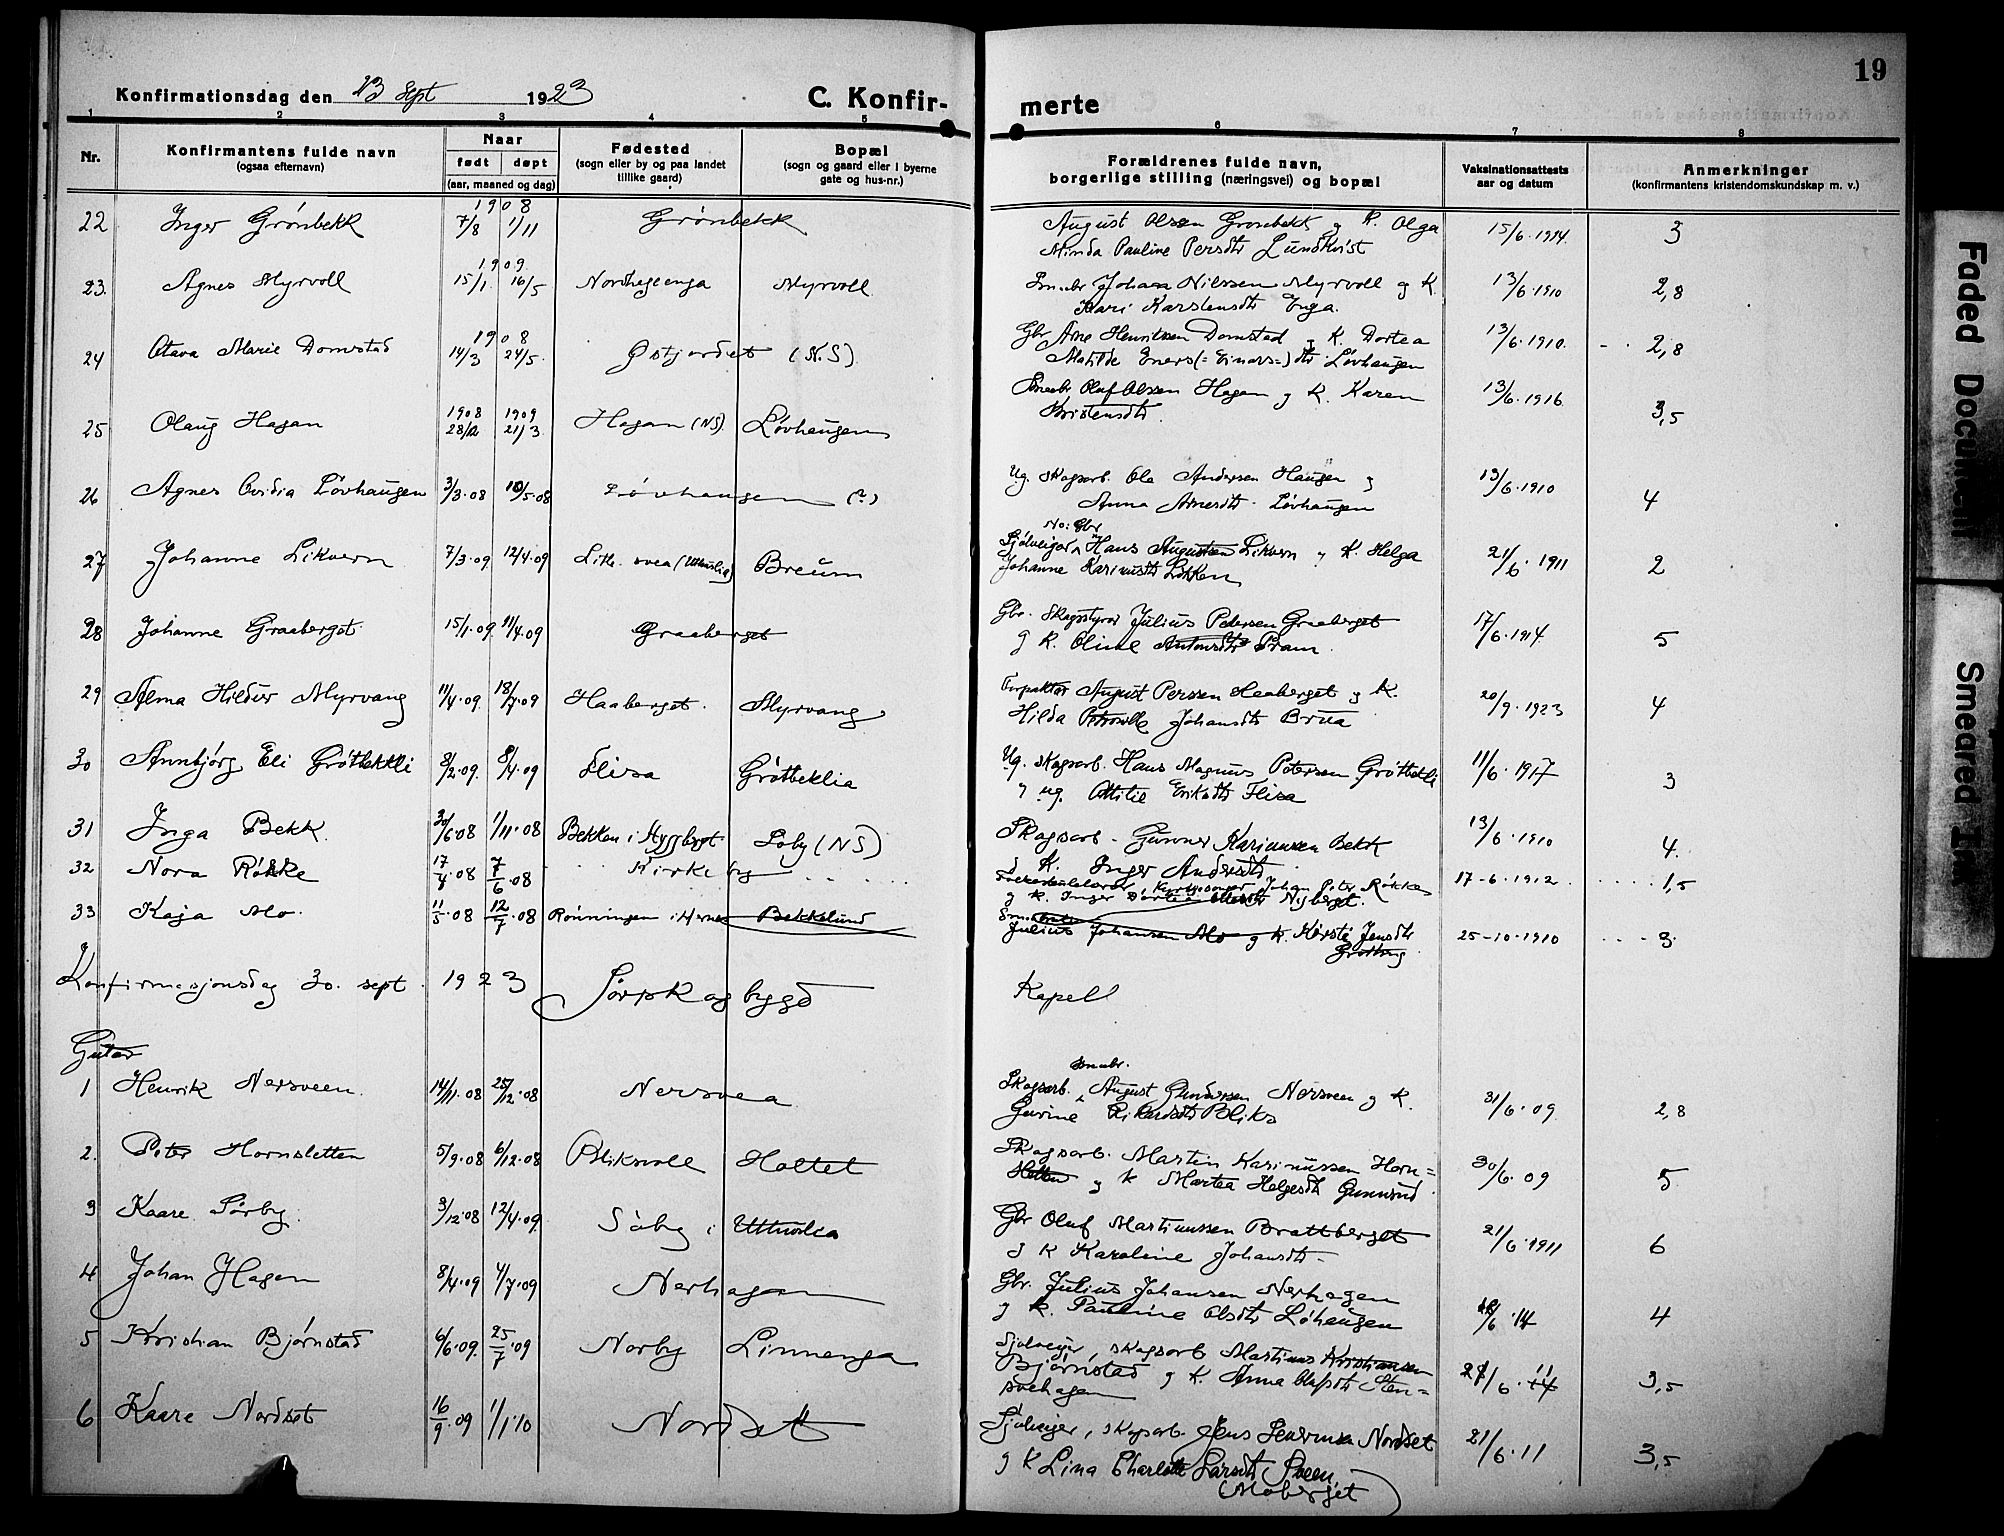 19
Konfirmationsdag den 23 sept 1923
C. Konfirmerte
1 2 3 4 5 6 7 8
Nr.
Konfirmantens fulde navn
(ogsaa efternavn)
Naar
født døpt
(aar, maaned og dag)
Fødested
(sogn eller by og paa landet
tillike gaard)
Bopæl
(sogn og gaard eller i byerne
gate og hus-nr.)
Forældrenes fulde navn,
borgerlige stilling (næringsvei) og bopæl
Vaksinationsattests
aar og datum
Anmerkninger
(konfirmantens kristendomskundskap m. v.)
22 Inger Grönbekk 1908 7/8 1/11 Grönbekk August Olsen Gronbekk og K. Olga 15/6.1914. 3
Minda Pauline Persdtr Lundkvist
23. Agnes Myrvoll 1909 15/1. 16/5 Myrvoll Johan Nilssen Myrvoll og K. 13/6.1910 2,8
Kari Karstensdtr Enga.
24 Otava Marie Domstad 1908 14/3 24/5. Östjordet (N.S) Gbr Arne Henriksen Domstad og K. Dortea 13/6.1910. 2,8
Matilde Eners (= Einars =) dtr Lövhaugen
25 Olaug Hagan 1908 28/12 1909 21/3 Hagan (NS) Lövhaugen Oluf Olsen Hagen og K. Karen 13/6.1916. 3,5
Kristensdtr.
26 Agnes Ovidia Lövhaugen 3/3.08 10/5.08 Lövhaugen (?) Ug. skogsarb. Ola Andersen Haugen og 13/6.1910 4
Anna Arnesdtr. Lövhaugen
27 Johanne Likvern 7/3.09 12/4.09 Breum No: Gbr
Sjölveigar Hans Augustsen Likvern og K. Helga 21/6.1911 2
Johanne Karinusdtr Lökken
28 Johanne Graaberget 15/1.09. 11/4.09 Graaberget Gbr. Skogsstyrer Julius Pedersen Graaberget 17/6.1914 5
og K. Oline Antonsdtr Bram.
29 Alma Hildur Myrvang 11/4.09. 18/7.09 Haaberget. Myrvang Forpakter August Perssen Haaberget og K. 20/9.1923 4
Hilda Petronelle Johansdtr Brua
30 Annbjörg Eli Gröttbekkli 8/2.09. 8/4.09 Flisa Gröttbeklia Ug. skogsarb. Hans Magnus Petersen Gröttbekli 11/6.1917 3
og ug. Otilie Eriksdtr Flisa
31 Inga Bekk. 30/6.08 1/11.08 Bekken i Loby (NS) Skogsarb. Gunner Karinussen Bekk 13/6.1910 4.
K. Inger Andersdtr
32 Nora Rökke 17/4.08 7/6.08 Kirkeby Johan Peter Rökke 17-6-1912. 1,5
og K. Inger Dortea Nyberget.
33 Kaja Mo. 11/5.08 12/7.08 Rönningen i Hernes Bekkelund Julius Johansen Mo og K. Kersti Jensdtr 25-10-1910 3.
Konfirmasjonsdag 30. sept. 1923 Sörskogbygd Kapell
Guter
1 Henrik Nersveen. 14/11.08 25/12.08 Nersvea Smbr.
Skogsarb. August Gundersen Nersveen og K. 31/6.09. 2,8
Gurine Rikardsdtr Bliks
2. Peter Hornsletten 5/9.08 6/12.08 Bliksvoll Holtet Skogsarb. Martin Karinussen Horn= 30/6.09 5
sletten og K Martea Helgesdtr Gunnrud.
3 Kaare Sörby. 3/12.08 12/4.09. Söby i Utnuslia Gbr Oluf Martinussen Brattberget 21/6.1911 6
og K Karoline Johansdtr
4 Johan Hagen 8/4.09 4/7.09 Nerhagen Gbr. Julius Johansen Nerhagen 4
og K. Pauline Olsdtr Löhaugen
5 Kristian Björnstad 6/6.09. 25/7.09 Norby Linnenga Sjölveiger, skogsarb Martinus Kristiansen 3,5
Björnstad og K. Anna Olafsdtr Sten=
svehagen
6 Kaare Nordset 16/9.09 1/1.10 Nordset Sjölveiger, skogsarb. Jens Nordset 21/6.11 3,5
og K Lina Charlotte Larsdtr Sveen.
(Moberget)
Faded Document
Smeared Ink